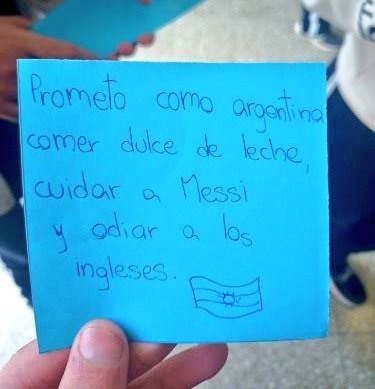 Prometo como argentina
comer dulce de leche,
cuidar a Messi
y odiar a los
ingleses.